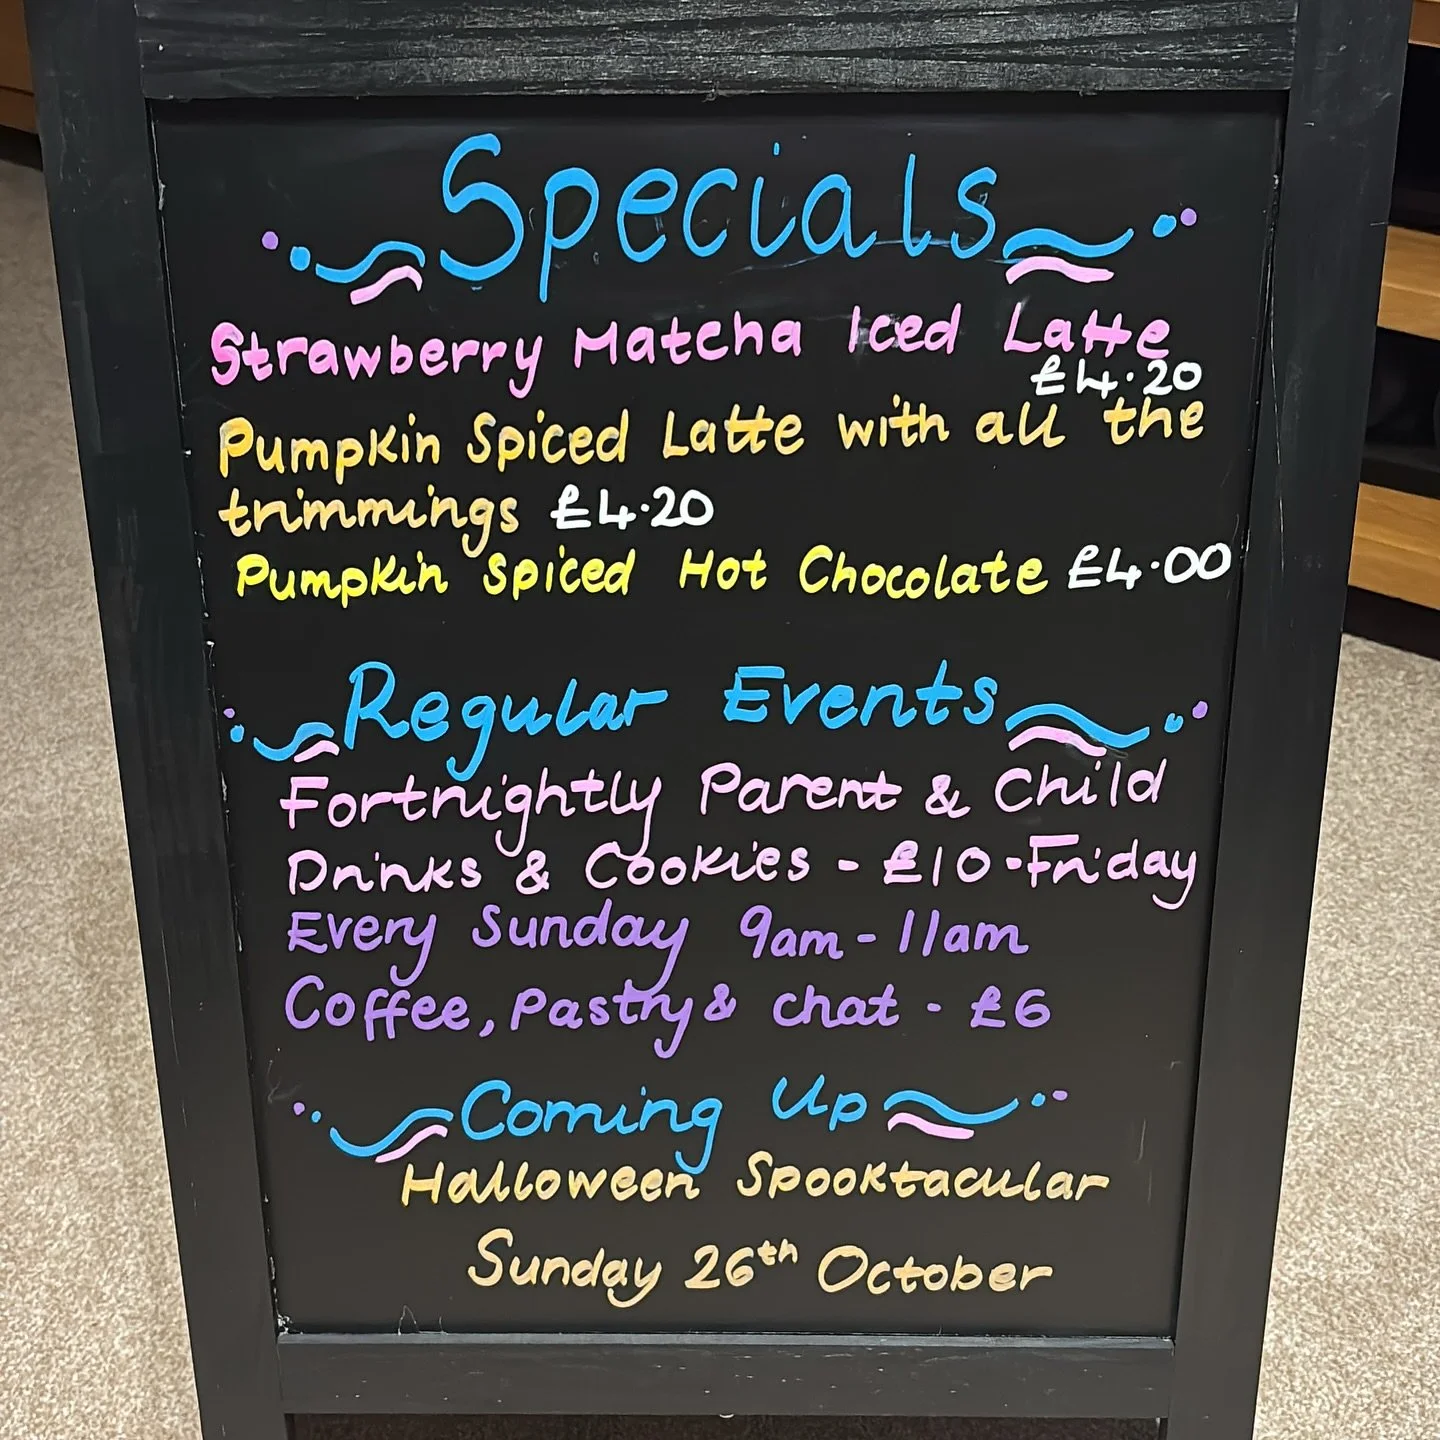 Specials
Strawberry Matcha Iced Latte
£4.20
Pumpkin Spiced Latte with all the
trimmings £4.20
Pumpkin Spiced Hot Chocolate £4.00
Regular Events
Fortnightly Parent & Child
Drinks & Cookies - £10 - Friday
Every Sunday 9am - 11am
Coffee, Pastry & chat - £6
Coming Up
Halloween Spooktacular
Sunday 26th October